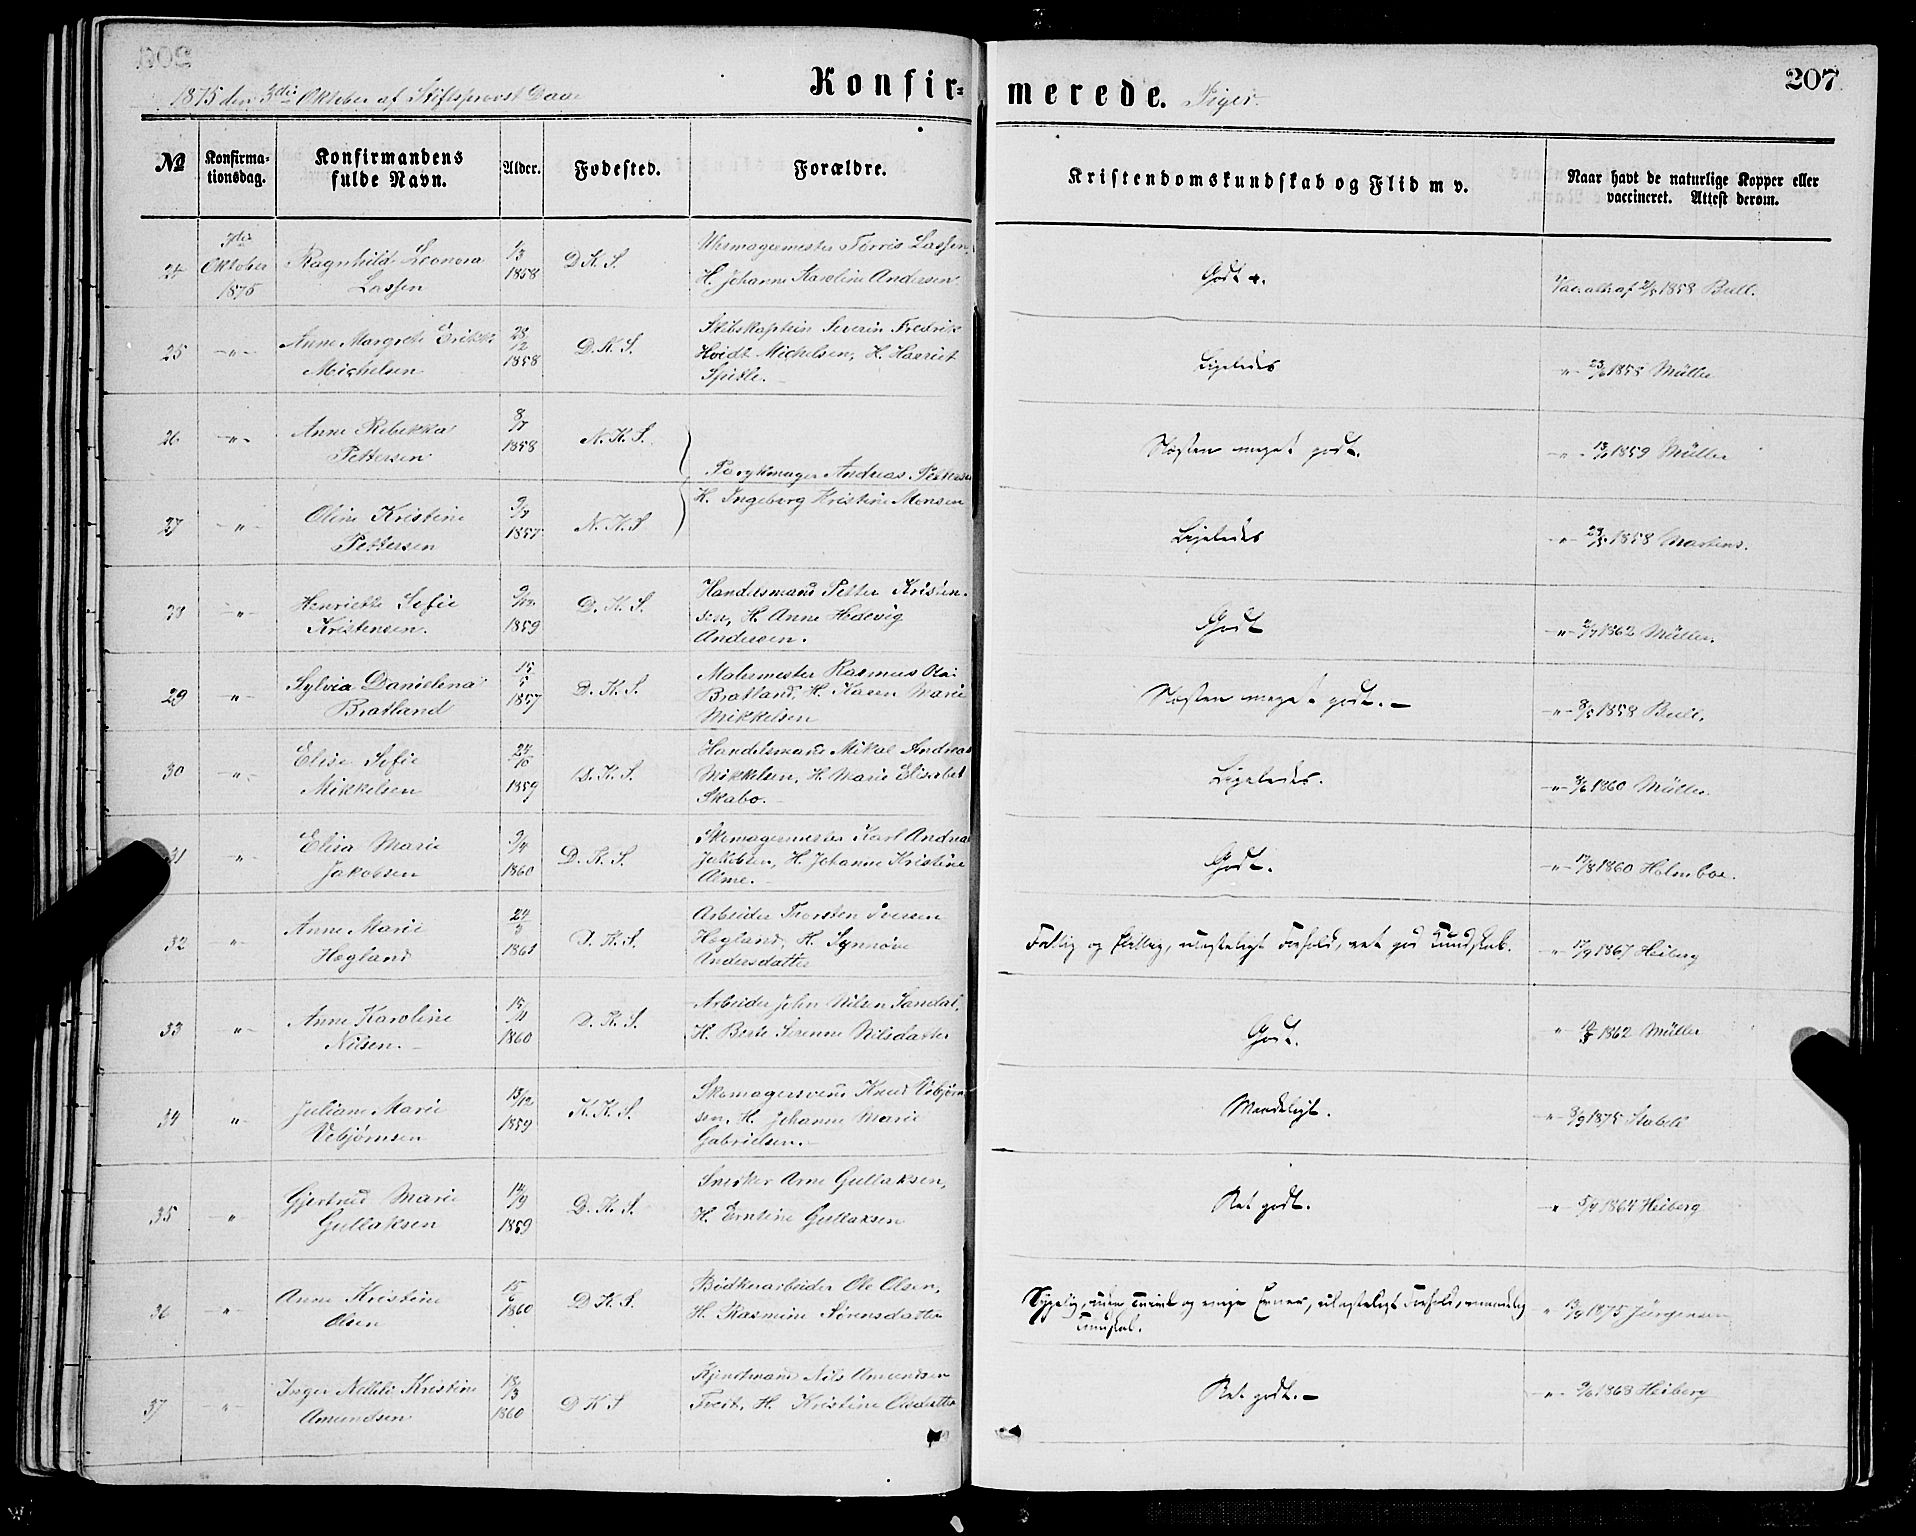 207
1875 den 3die Oktober af Stiftsprovst Daae
Konfir-
merede. Piger.
№
Konfirma-
tionsdag.
Konfirmandens
fulde Navn.
Alder.
Fødested.
Forældre.
Kristendomskundskab og Flid m v.
Naar havt de naturlige Kopper eller
vaccineret. Attest derom.
24
3die
Oktober
1875
Ragnhild Leonora
Lassen
1/3
1858
D. K. S.
Uhrmagermester Torris Lassen,
H. Johanne Karoline Andersen
Godt +.
1858 Bull.
25
-"-
Anne Margrete
Michelsen
28
12
1858
D. K. S.
Skibskaptein Severin Fredrik
Hvidt Michelsen, H. Harriet
Ligeledes
-"- 1858 Müller
26
-"-
Anne Rebekka
Pettersen
1858
N. K. S.
Parykmager Andreas Pettersen
H. Ingeborg Kristine Monsen
Næsten meget godt.
-"- 1859 Müller
27
-"-
Oline Kristine
Pettersen
1857
N. K. S
Ligeledes
-"- 1858 Martens.
28
-"-
Henriette Sofie
Kristensen.
9/12
1859
D. K. S.
Handelsmand Petter Kristen-
sen, H. Anne Hedevig
Andersen.
Godt
-"- 1862 Müller.
29
-"-
Sylvia Danielena
Bratland
15
1857
D. K. S.
Malermester Rasmus
Bratland, H. Karen Marie
Mikkelsen
Næsten meget godt.-
-"- 8/5 1858 Bull.
30
-"-
Elise Sofie
Mikkelsen
24
1859
D. K. S.
Handelsmand Mikal Andreas
Mikkelsen, H. Marie Elisabet
Skabo.
Ligeledes.
-"- 8/6 1860 Müller.
31
"
Elisa Marie
Jakobsen
9/4
1860
D. K. S.
Skomagermester Karl Andreas
Jakobsen, H. Johanne Kristine
Godt.
-"- 17/8 1860 Holmboe.
32
"
Anne Marie
Hegland
24
1861
D. K. S.
Arbeider Torsten Iversen
Hegland, H. Synnøve
Andersdatter
Fattig og flittig, ulasteligt Forhold, ret god Kundskab.
-"- 17/9 1867 Heiberg
33
"
Anne Karoline
Nilsen.
15
1860
D. K. S.
Arbeider John Nilsen Sandal,
H. Berte Serenne Nilsdatter
Godt.
" 1862 Müller
34
"
Juliane Marie
Vebjørnsen
13/12
1859
K. K. S.
Skomagersvend Knud Vebjørn-
sen, H. Johanne Marie
Gabrielsen.
Maadeligt.
-"- 8/9 1875 Stabell
35
"
Gjertrud Marie
Gullaksen
14/9
1859
D. K. S.
Snedker Arne Gullaksen,
H. Erntine Gullaksen
Ret godt.
-"- 1864 Heiberg
36
"
Anne Kristine
Olsen
15
6
1860
D. K. S.
Bødkerarbeider Ole Olsen,
H. Rasmine Sørensdatter
Sygelig, uden og ringe Evner, ulasteligt Forhold, maadelig
Kundskab.
" 1875 Jürgensen
37
-"-
Inger Kristine
Amundsen
18
3
1860
D K S
Nils Amundsen
Tveit, H. Kristine Olsdatter
Ret godt.-
-"- 9/6 1868 Heiberg